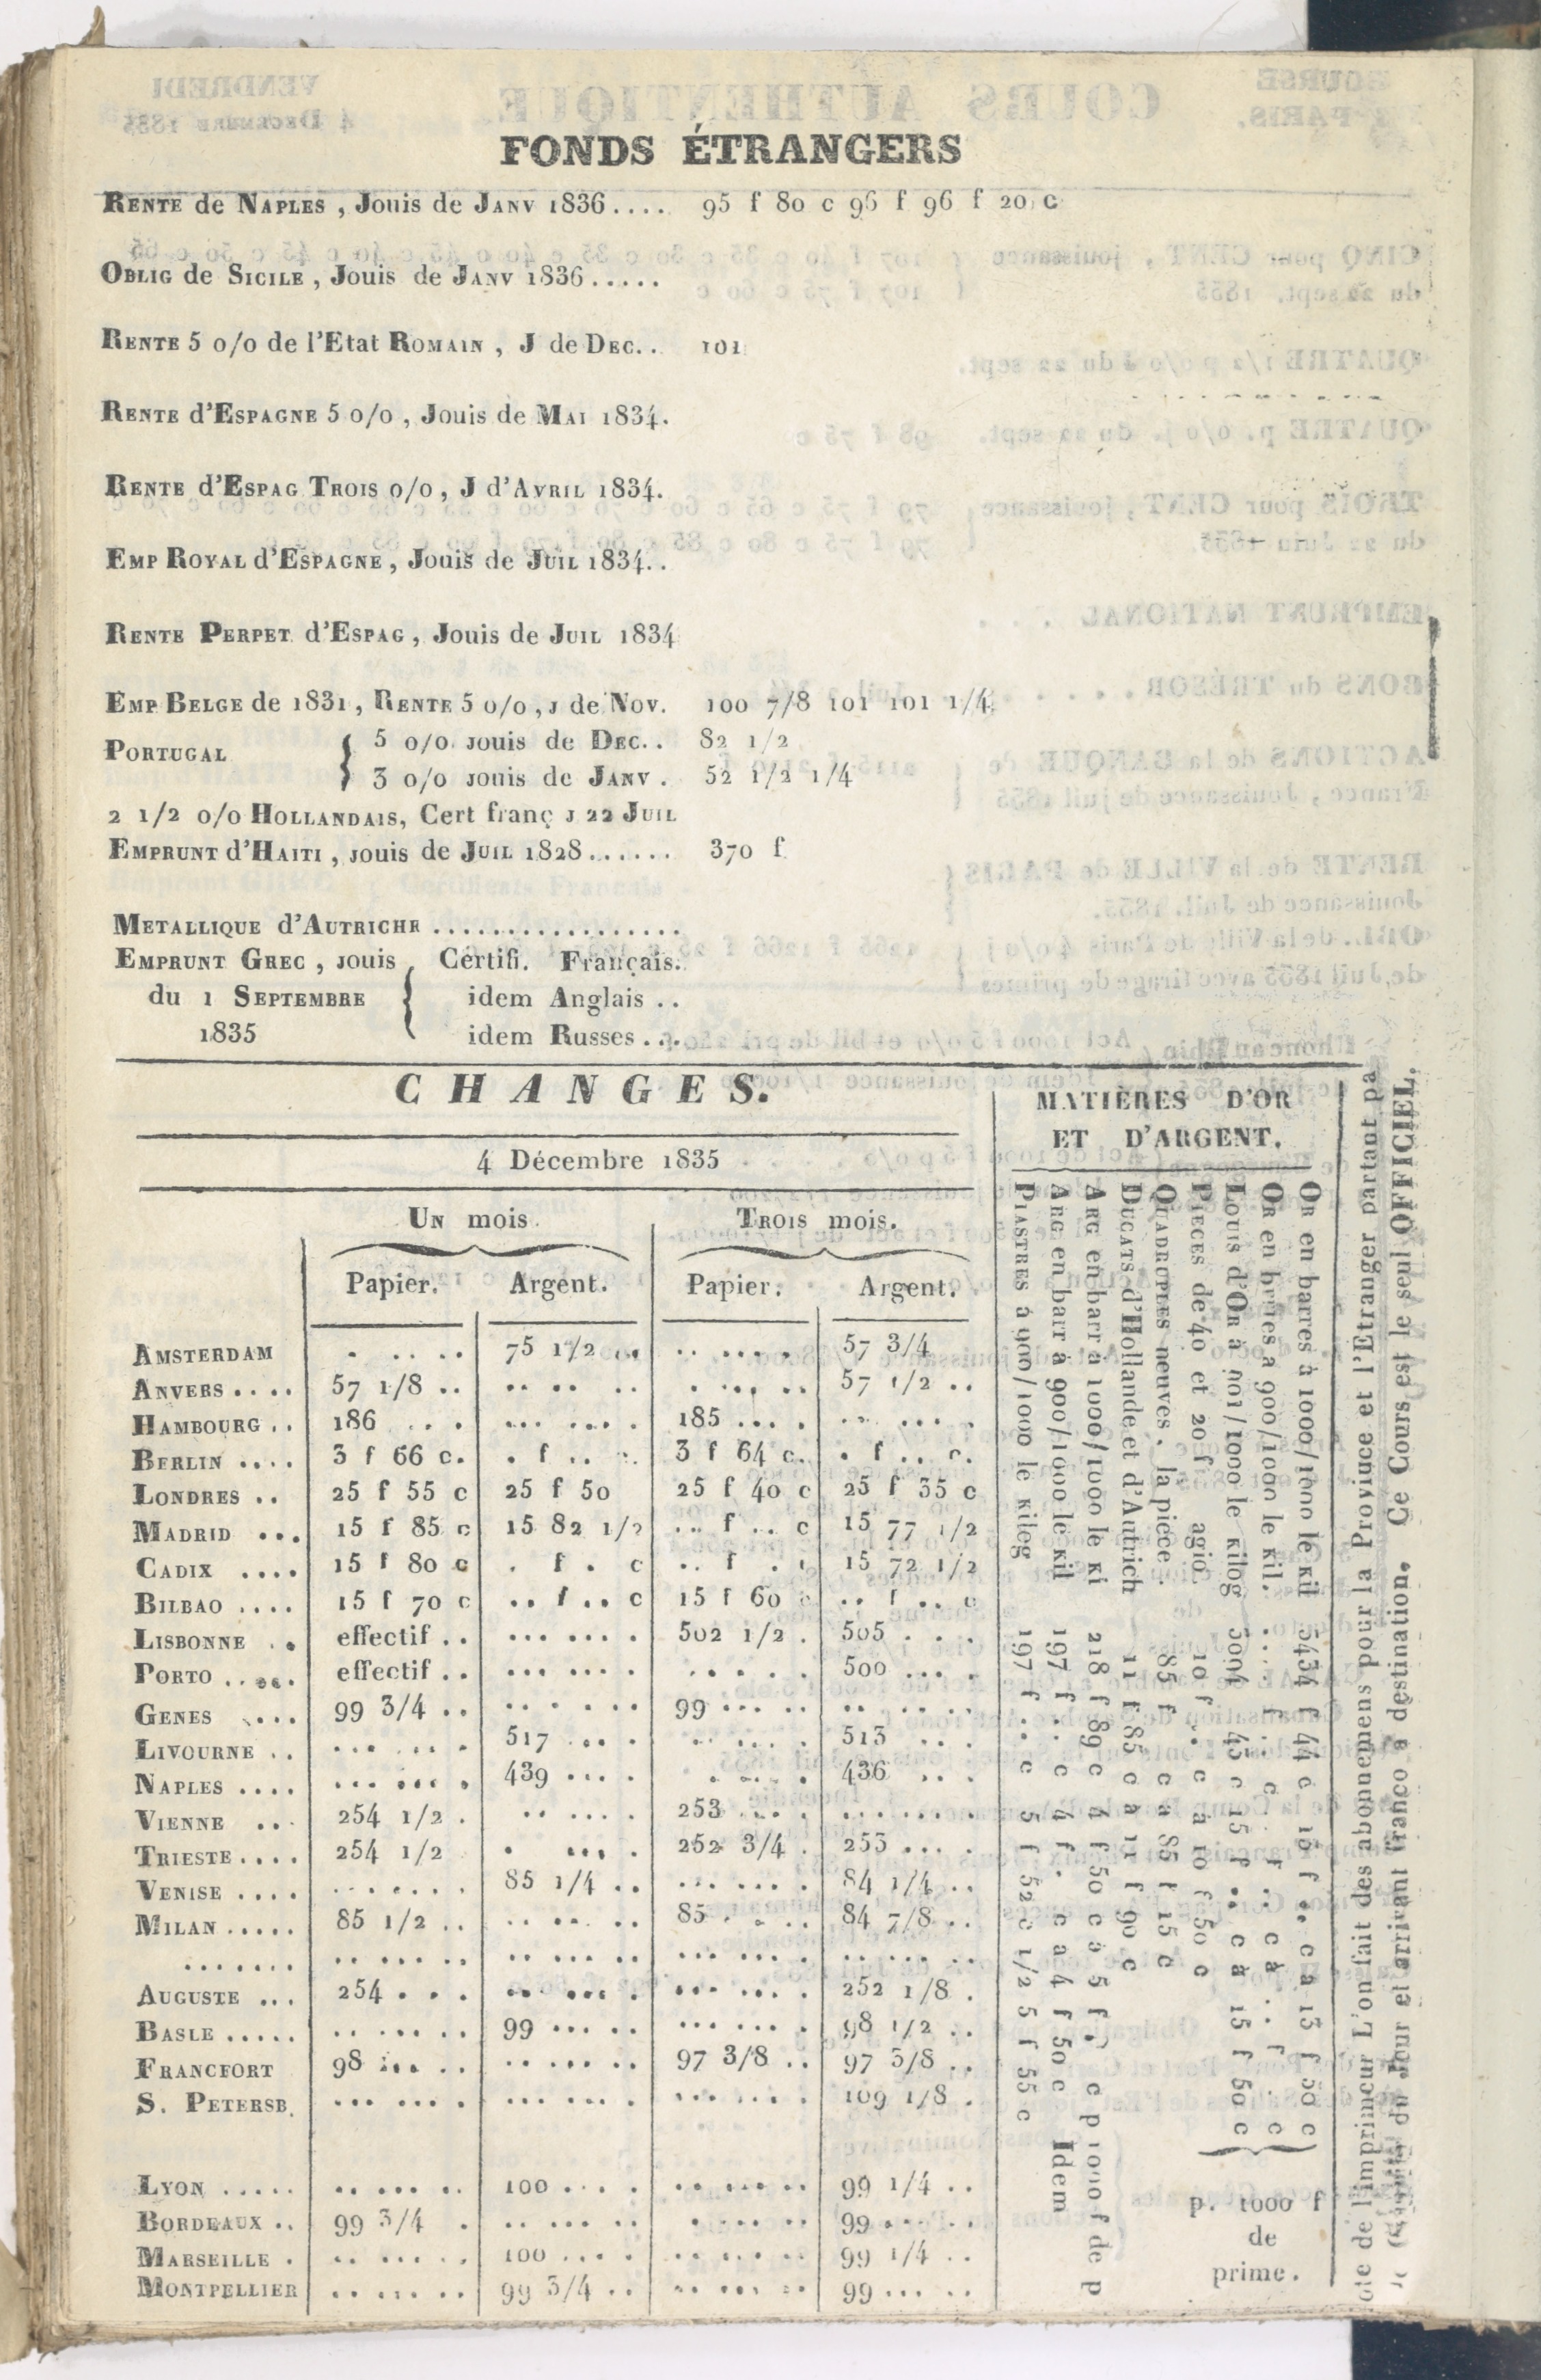 FONDS ÉTRANGERS
RENTE de NAPLES , Jouis de JANV 1836.... 95 f 80 c 96 f 96 f 20 c
OBLIG de SICILE , Jouis de JANV 1836.....
RENTE 5 o/o de l'Etat ROMAIN , J de DEC.. 101
RENTE d'ESPAGNE 5 o/o , Jouis de MAI 1834.
RENTE d'ESPAG TROIS o/o , J d'AVRIL 1834.
EMP ROYAL d'ESPAGNE , Jouis de JUIL 1834..
RENTE PERPET d'ESPAG , Jouis de JUIL 1834
EMP BELGE de 1831 , RENTE 5 o/o , J de Nov. 100 7/8 101 101 1/4
PORTUGAL { 5 o/o jouis de DEC.. 82 1/2
3 o/o jouis de JANV . 52 1/2 1/4
2 1/2 o/o HOLLANDAIS, Cert franç J 22 JUIL
EMPRUNT d'HAITI , jouis de JUIL 1828...... 370 f
METALLIQUE d'AUTRICHE .................
EMPRUNT GREC , jouis { Certifi. Français..
du 1 SEPTEMBRE idem Anglais ..
1835 idem Russes ...
CHANGES.
4 Décembre 1835
UN mois. TROIS mois.
Papier. Argent. Papier. Argent.
AMSTERDAM . .. .. 75 1/2 .. .. .... 57 3/4
ANVERS .... 57 1/8 .. .. .. .. . ... .. 57 1/2 ..
HAMBOURG .. 186 ... . ... ... . 185 .... . .. ... .
BERLIN .... 3 f 66 c. . f .. c. 3 f 64 c. . f .. c.
LONDRES .. 25 f 55 c 25 f 50 25 f 40 c 25 f 35 c
MADRID ... 15 f 85 c 15 82 1/2 .. f .. c 15 77 1/2
CADIX .... 15 f 80 c . f . c .. f . c 15 72 1/2
BILBAO .... 15 f 70 c .. f .. c 15 f 60 c .. f .. c
LISBONNE .. effectif .. ... ... . 502 1/2 . 505 . . .
PORTO ..... effectif .. ... ... . .. ... . 500 ... .
GENES .... 99 3/4 .. .. .. .. 99 ... .. .. .. ..
LIVOURNE .. ... ... . 517 ... . .. ... . 513 ...
NAPLES .... ... ... . 439 ... . . ... . 436 .. .
VIENNE ... 254 1/2 . .. ... . 253 ... . ... ... .
TRIESTE .... 254 1/2 . ... . 252 3/4 . 253 ... .
VENISE .... ... ... . 85 1/4 .. ... ... . 84 1/4 ..
MILAN ..... 85 1/2 .. .. .. .. 85 . . .. 84 7/8 ..
....... .. ... .. .. ... .. ... ... . .. ... ..
AUGUSTE ... 254 . . . ... ... . ... ... . 252 1/8 .
BASLE ..... .. ... .. 99 ... .. ... ... . 98 1/2 ..
FRANCFORT 98 ... .. .. ... .. 97 3/8 .. 97 5/8 ..
S. PETERSB. ... ... . ... ... . ... ... . 109 1/8 .
LYON ..... .. ... .. 100 ... . .. ... .. 99 1/4 ..
BORDEAUX .. 99 3/4 . .. ... .. . ... .. 99 ... ..
MARSEILLE . .. ... .. 100 .... . .. ... .. 99 1/4 ..
MONTPELLIER .. ... .. 99 3/4 .. .. ... .. 99 ... ..
MATIÈRES D'OR
ET D'ARGENT.
OR en barres à 1000/1000 le Kil 3434 f 44 c 13 f .. c a 13 f 50 c
OR en brres a 900/1000 le Kil. .... f .. c f .. c à .. f . c
LOUIS d'OR à 901/1000 le Kilog 3094 45 c 15 f .. c à 15 f 50 c
PIECES de 40 et 20 f agio. 10 f .. c à 10 f 50 c
QUADRUPLES neuves , la pièce . 85 f c a 85 f 15 c
DUCATS d'Hollande et d'Autrich 11 f 85 c a 11 f 90 c
ARG en barr à 1000/1000 le Ki 218 f 89 c 4 f 50 c à 5 f c p 1000 f de p
ARG en barr à 900/1000 le Kil 197 f .. c 4 f . c a 4 f 50 c Idem
PIASTRES à 900/1000 le Kileg 197 f .. c 5 f 52 c 1/2 5 f 55 c
p. 1000 f
de
prime.
de l'imprimeur L'on fait des abonnemens pour la Province et l'Etranger partant
du Jour et arrivant franco a destination. Ce Cours est le seul OFFICIEL.